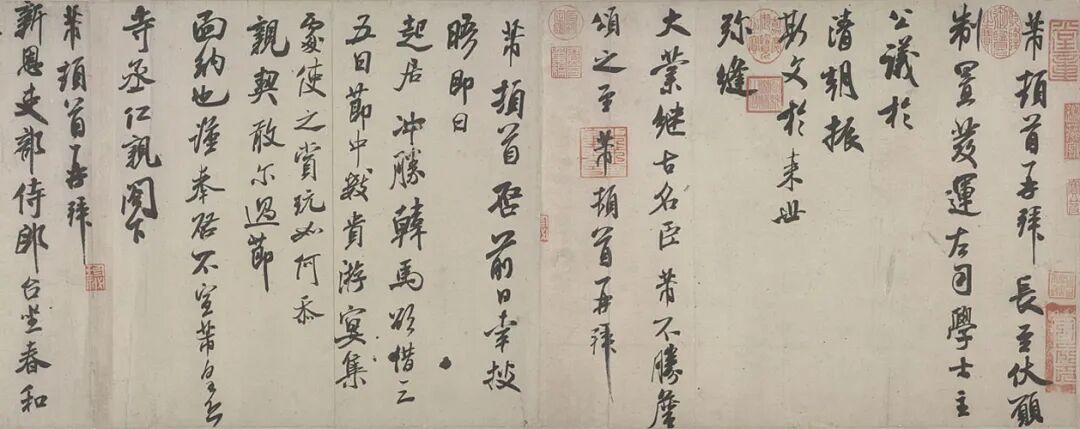 芾頓首再拜 長至伏願
制置發運左司學士主
公議於
清朝振
斯文於来世
弥縫
大業継古名臣 芾不勝詹
頌之至 芾頓首再拜
芾頓首啓 前日幸披
晤即日
起居冲勝韓馬欲借三
五日節中数貴游宴集
處使之賞玩如何忝
親契敢尔過節
面納也謹奉啓不宣芾白
寺丞仁親閣下
芾頓首再拜
新恩吏部侍郎台坐春和